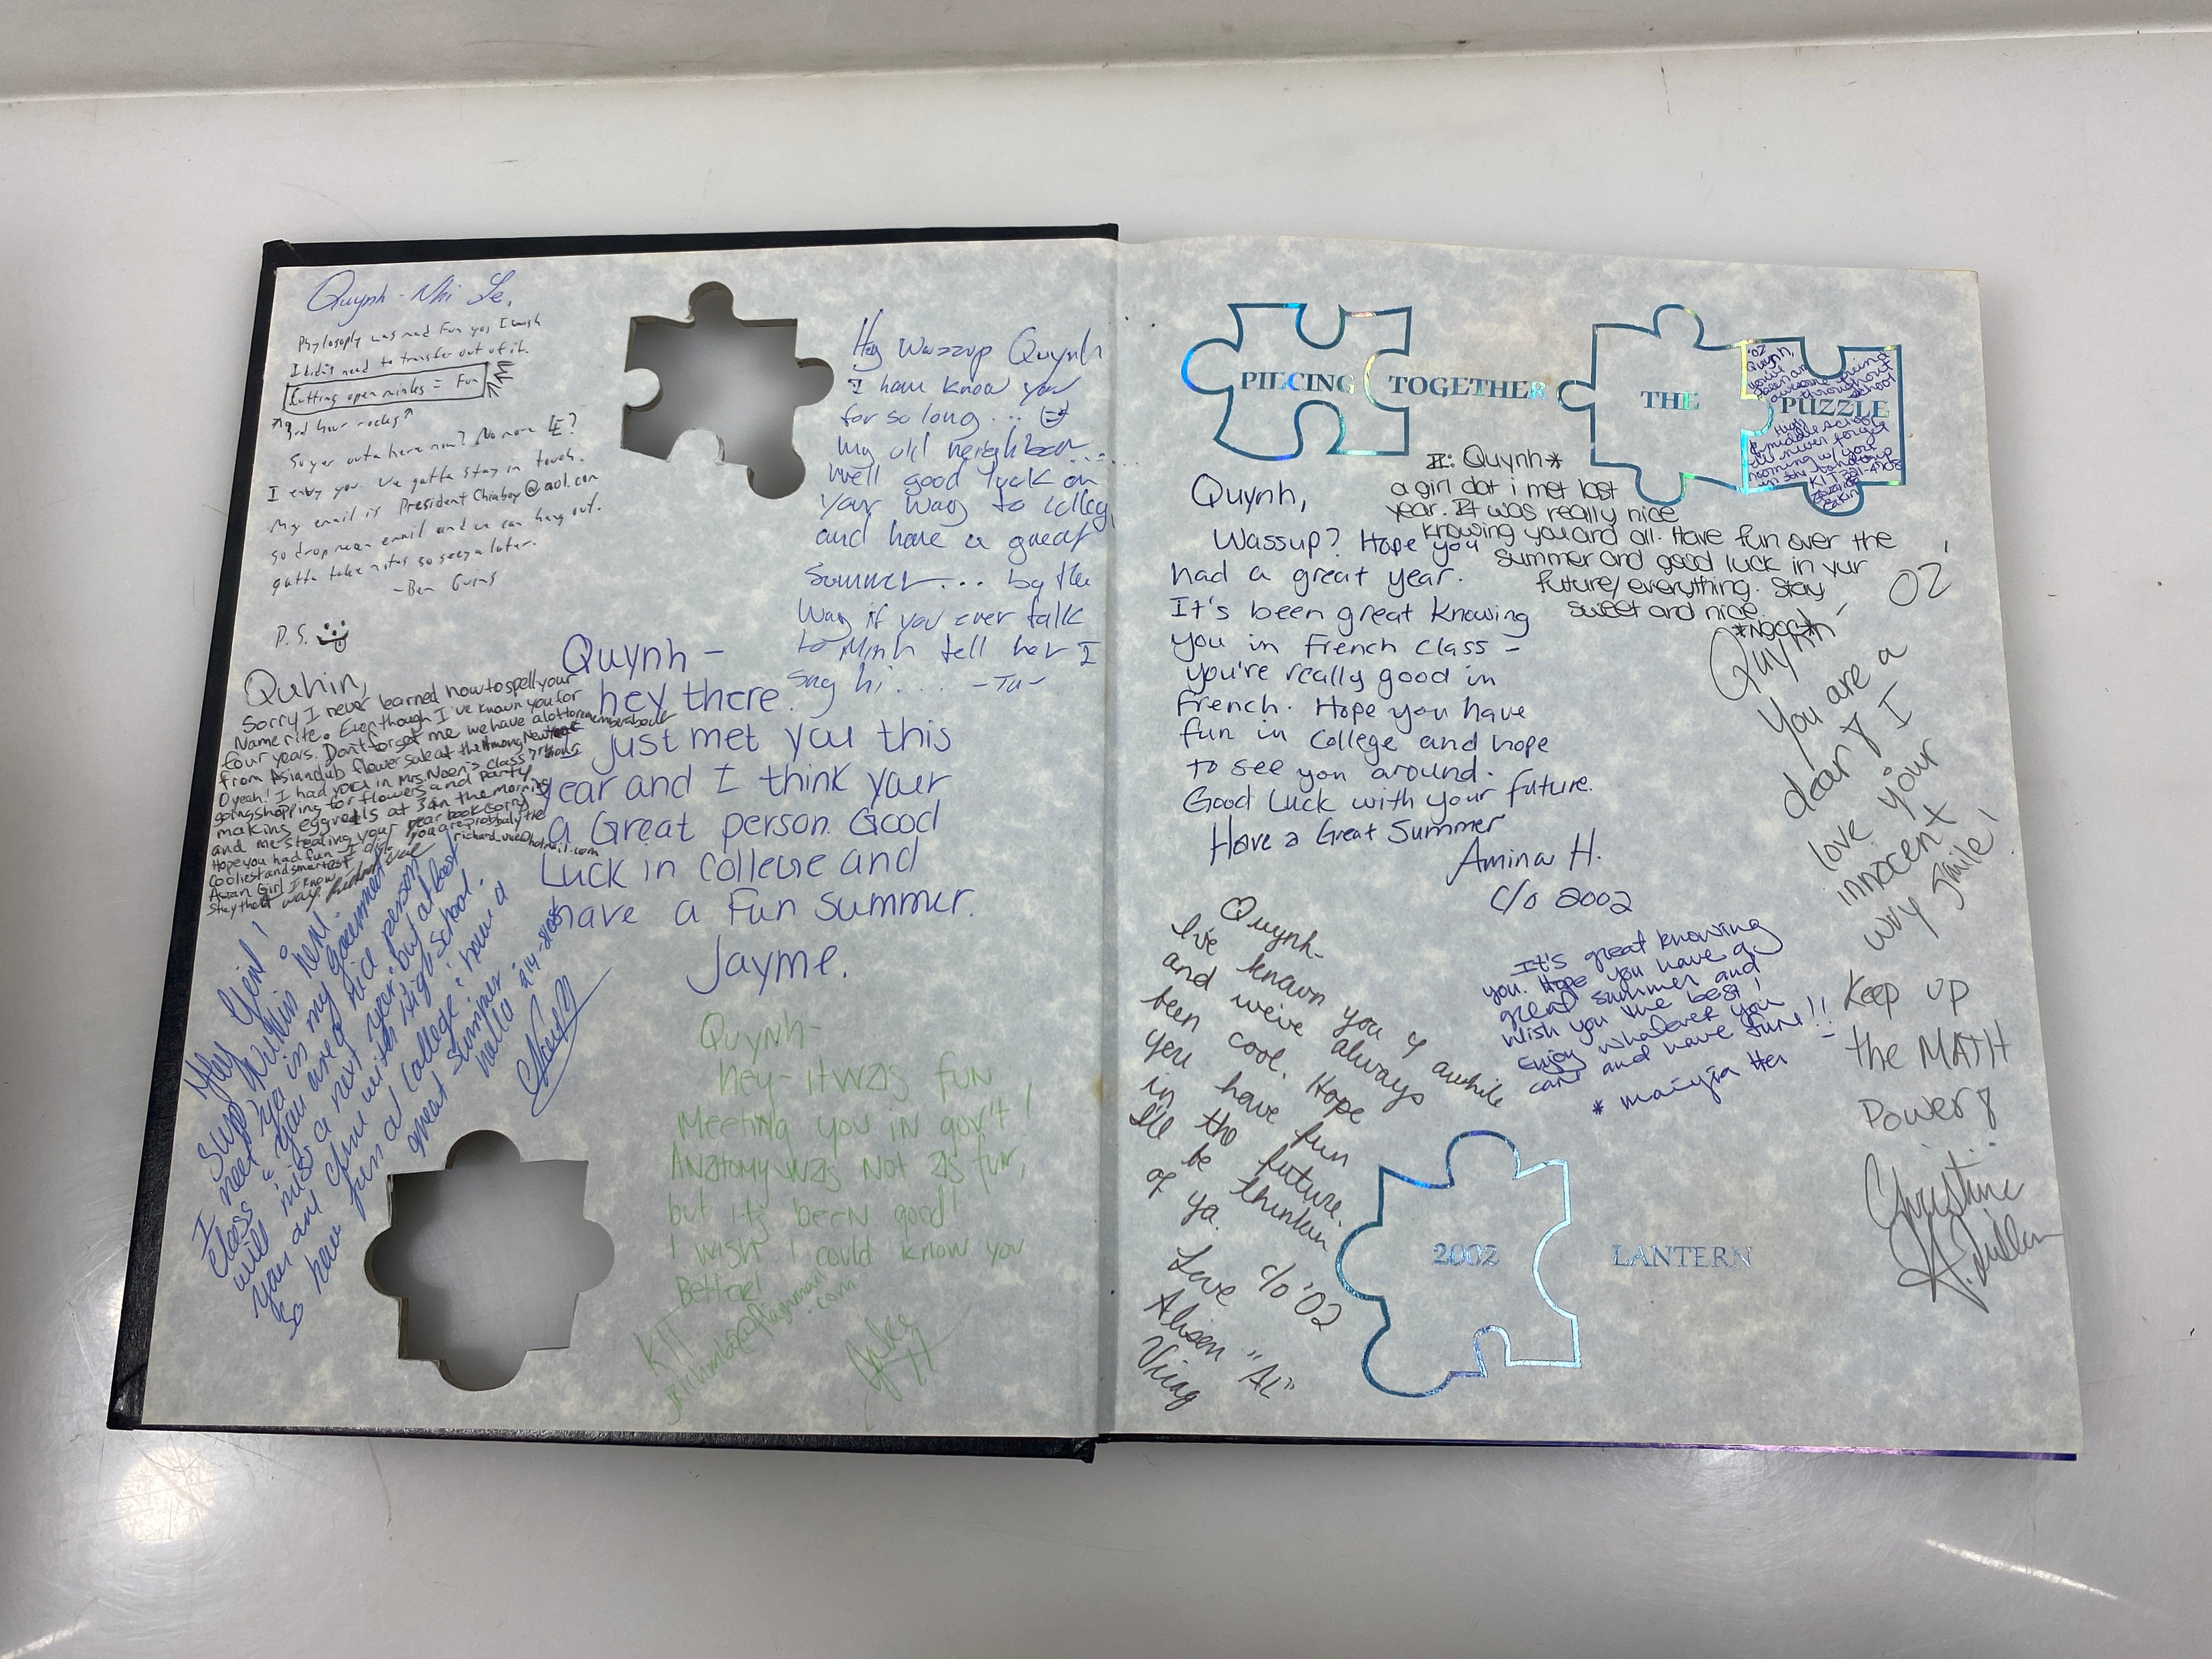 Quynh-Nhi Le,
Phylosophy was mad Fun yo, I wish
I didn't need to transfer out of it.
Cutting open minks = Fun
3rd hour rocks
So yer outa here now? No more LE?
I envy you. We gotta stay in touch.
My email is PresidentChiaboy@aol.com
so drop me an email and we can hang out.
gotta take notes so seeya later.
-Ben
P.S.
Hey Wazzup Quynh
I have know you
for so long....
my old neighbor....
Well good luck on
your way to colleg
and have a great
Summer... by the
Way if you ever talk
to Minh tell her I
say hi.... -Tu-
Quhin,
Sorry I never learned how to spell your
Name rite. Even though I've known you for
four years. Don't forget me we have alott to remember about
from Asianclub flower sale at the Hmong New Year
O yeah! I had you in Mrs. Noen's class 7th hour
going shopping for flowers and party
making eggrolls at 3 in the morning
and me stealing your year book (sorry)
Hope you had fun I did. you are probbaly the
cooliest and smartest
Asian Girl I know
Stay that way
Quynh -
hey there.
just met you this
year and I think your
a Great person. Good
Luck in College and
have a Fun Summer.
Jayme.
Hey
Supp! Nuthin here!
I need ya in my government
class. You are a nice person
will miss a next year, but at least
you are thru with high school.
So have fun at College & have a
great Summer
Quynh-
hey- it was fun
Meeting you in gov't!
Anatomy was not as fun,
but it's been good!
I wish I could know you
Better!
KIT
PIECING TOGETHER THE PUZZLE
'02
Quynh,
you've
been an
awesome friend
throughout
High
& middle school
I'll never forget
rooming w/ you
KIT
II: Quynh*
a girl dat i met last
year. It was really nice
knowing you and all. Have fun over the
summer and good luck in yur
future/everything. Stay
sweet and nice.
*Ngoc*
Quynh,
Wassup? Hope you
had a great year.
It's been great knowing
you in French class -
you're really good in
French. Hope you have
fun in college and hope
to see you around.
Good Luck with your future.
Have a Great Summer
Amina H.
c/o 2002
Quynh- 02'
You are a
dear & I
love your
innocent
wry smile!
Keep up
the MATH
Power &
Christine
Quynh-
I've known you 4 awhile
and we've always
been cool. Hope
you have fun
in the future.
I'll be thinkin
of ya.
Love c/o '02
Alisen "AL"
Ving
It's great knowing
you. Hope you have a
great summer and
wish you the best!
Enjoy whatever you
can and have fun!!
* maiyia Her
2002 LANTERN